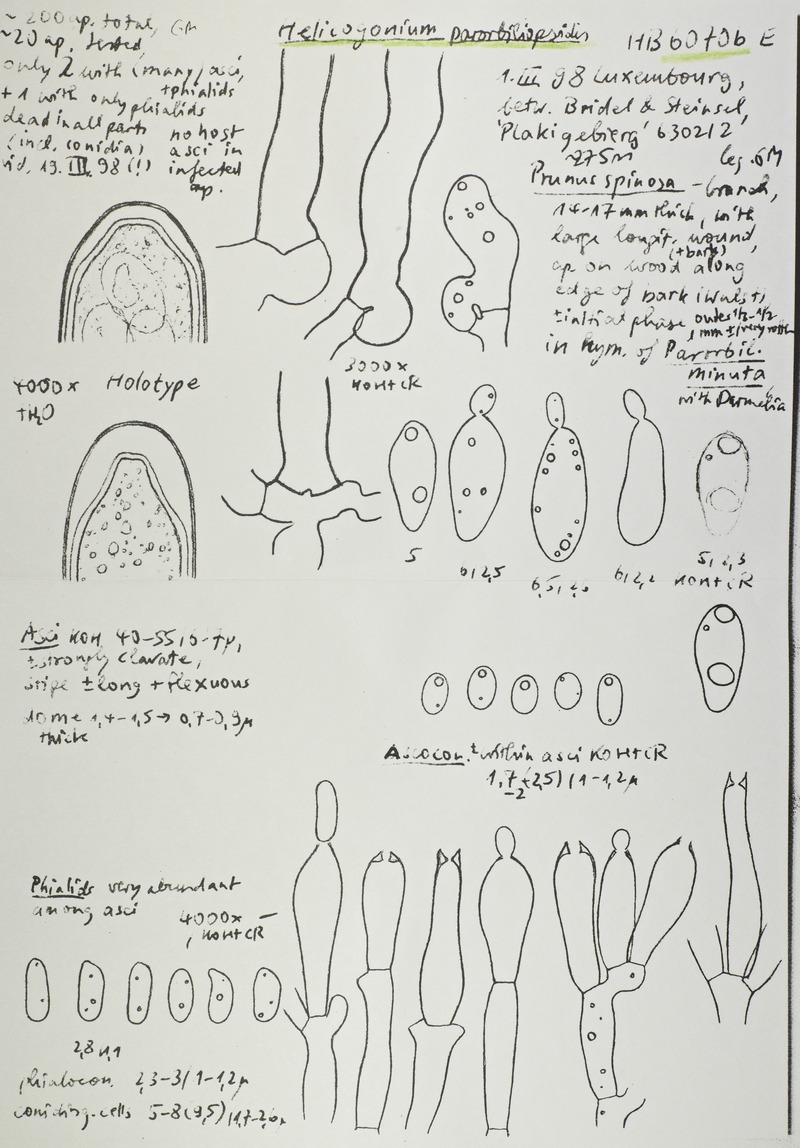 ~ 200 ap. total, GM
~20 ap. tested,
only 2 with (many) asci,
+phialids
+ 1 with only phialids
dead in all parts
(incl. conidia)
vid. 19. III. 98 (!)
no host
asci in
infected
ap.
Helicogonium parorbiliopsidis
HB 6070b E
1. III 98 Luxembourg,
betw. Bridel & Steinsel,
'Plakigebierg' 6302/2
~275m leg. GM
Prunus spinosa - branch,
14-17 mm thick, with
large longit. wound,
(+bark)
ap on wood along
edge of bark (Wulst),
± initial phase
in hym. of Parorbil.
minuta
with Dermea
4000x Holotype
+H2O
3000x
KOH+CR
5
6/2,5
6,5/2,3
6/2,2
5/2,3
KOH+CR
Asci KOH 40-55/6-7µ,
±strongly clavate,
stipe ±long + flexuous
dome 1,4-1,5 → 0,7-0,9µ
thick
Ascocon. ± within asci KOH+CR
1,7-2(2,5)/1-1,2µ
Phialids very abundant
among asci
4000x
, KOH+CR
2,8/1,1
phialocon. 2,3-3/1-1,2µ
conidiog. cells 5-8(9,5)/1,7-2,6µ